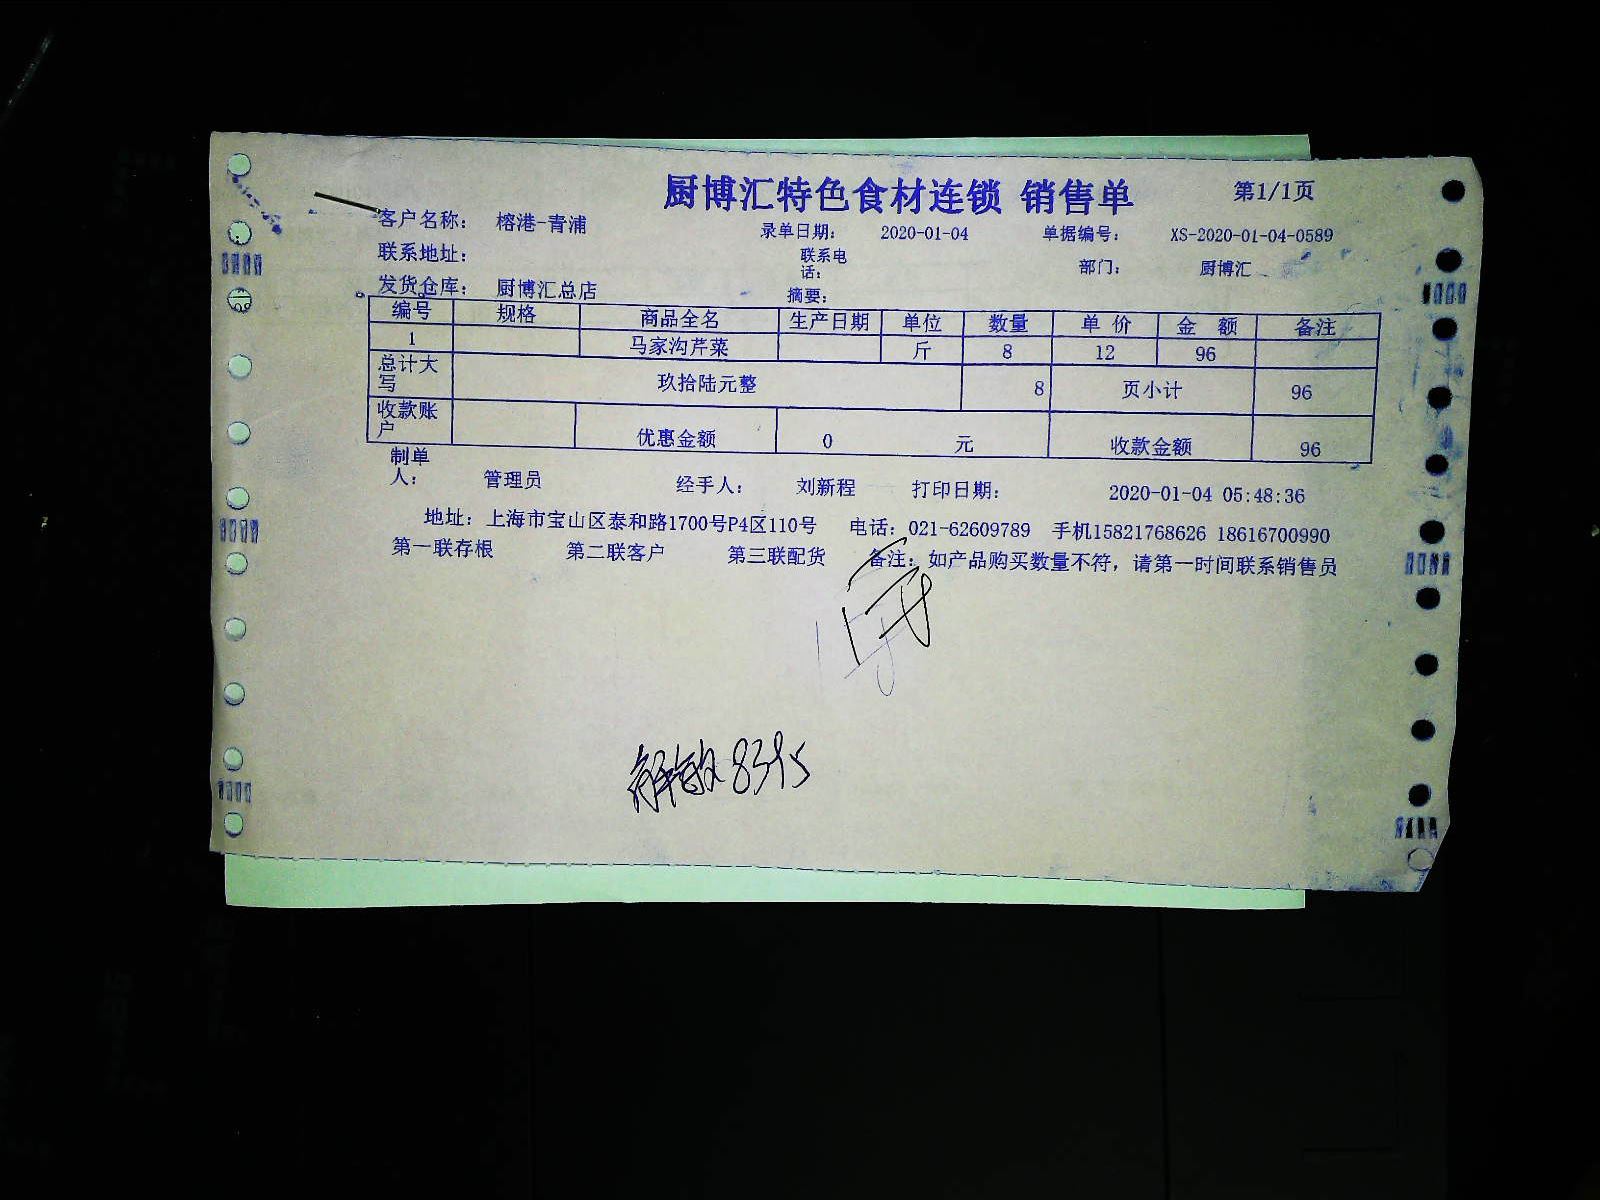 厨博汇特色食材连锁 销售单 第1/1页
客户名称： 榕港-青浦 录单日期： 2020-01-04 单据编号： XS-2020-01-04-0589
联系地址： 联系电话： 部门： 厨博汇
发货仓库： 厨博汇总店 摘要：
编号 规格 商品全名 生产日期 单位 数量 单价 金额 备注
1 马家沟芹菜 斤 8 12 96
总计大写 玖拾陆元整 8 页小计 96
收款账户 优惠金额 0 元 收款金额 96
制单人： 管理员 经手人： 刘新程 打印日期： 2020-01-04 05:48:36
地址：上海市宝山区泰和路1700号P4区110号 电话：021-62609789 手机15821768626 18616700990
第一联存根 第二联客户 第三联配货 备注：如产品购买数量不符，请第一时间联系销售员
解敏 8395